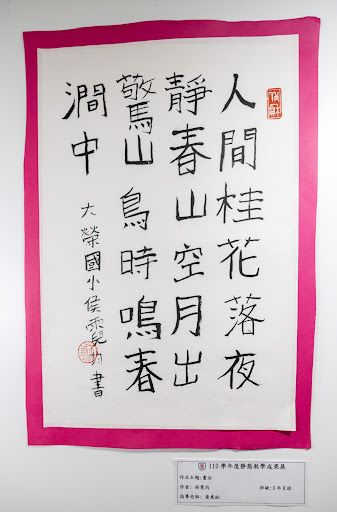 人間桂花落夜
靜春山空月出
驚山鳥時鳴春
澗中
大榮國小侯霓 書
110 學年度靜態教學成果展
作品主題:書法
作者:侯霓
班級:3年 班
指導老師:黃惠